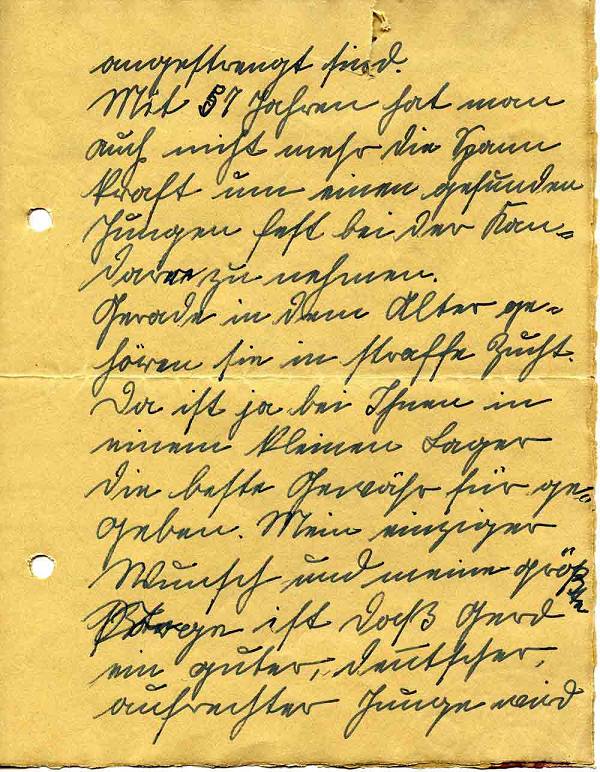 angestrengt sind.
Mit 57 Jahren hat man
auch nicht mehr die Spann
kraft um einen gesunden
Jungen fest bei der Kan-
darre zu nehmen.
Gerade in dem Alter ge-
hören sie in straffe Zucht.
Da ist ja bei Ihnen in
einem kleinen Lager
die beste Gewähr für ge-
geben. Mein einziger
Wunsch und meine größte
Sorge ist daß Gerd
ein guter, deutscher,
aufrechter Junge wird